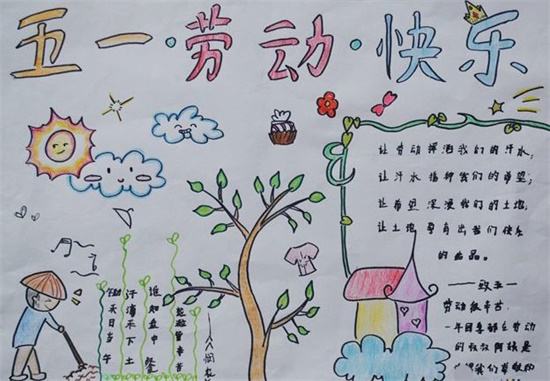 五一·劳动·快乐
让劳动挥洒我们的汗水,
让汗水播种我们的希望;
让希望深漫我们的土地,
让土地孕育出我们快乐
的果品。
——致五一
劳动最辛苦
一年四季都在劳动
的叔叔阿姨是
锄禾日当午
汗滴禾下土
谁知盘中餐
粒粒皆辛苦
——《悯农》